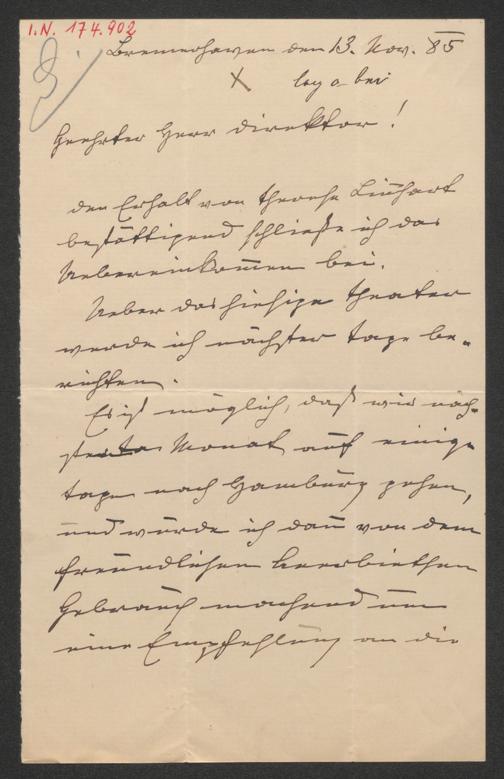 I.N. 174.902
Bremerhaven den 13. Nov. 85
bei
Geehrter Herr Direktor!
den Erhalt von
bestättigend schließe ich das
Uebereinkommen bei.
Ueber das hiesige Theater
werde ich nächster Tage be-
richten.
Es ist möglich, daß wir näch-
sten Monat auf einige
Tage nach Hamburg gehen,
und würde ich dann von dem
freundlichen Anerbiethen
Gebrauch machend um
eine Empfehlung an die